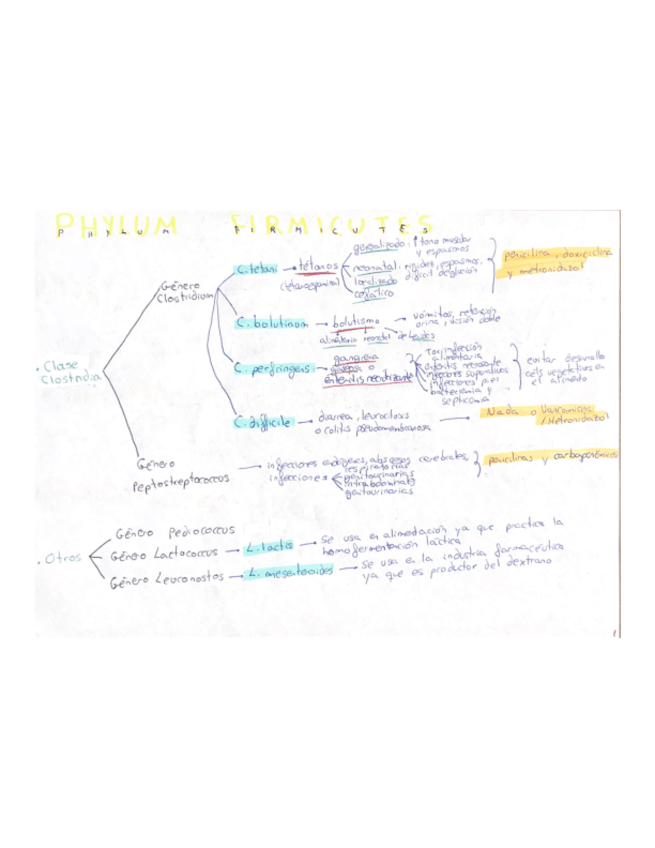 PHYLUM FIRMICUTES
PHYLUM FIRMICUTES
generalizado: ↑ tono muscular
y espasmos
C. tetani → tétanos
(tetanospasmina)
neonatal: rigidez, espasmos,
difícil deglución
localizado
cefálico
penicilina, doxiciclina
y metronidazol
Género
Clostridium
C. botulinum → botulismo → vómitos, retención
orina, visión doble
alimentario neonatal de heridas
. Clase
Clostridia
C. perfringens → gangrena
gaseosa o
enteritis necrotizante
Toxiinfección
alimentaria
enteritis necrosante
infecciones supurativas
infecciones piel
bacteriemia y
septicemia
evitar desarrollo
céls vegetativas en
el alimento
C. difficile → diarrea, leucocitosis
o colitis pseudomembranosa
Nada o Vancomicina
/Metronidazol
Género
Peptostreptococcus
infecciones endógenas, abscesos cerebrales,
infecciones
respiratorias
genitourinarias
intrabdominales
genitourinarias
penicilinas y carbapenémicos
. Otros
Género Pediococcus
Género Lactococcus → L. lactis → Se usa en alimentación ya que practica la
homofermentación láctica
Género Leuconostos → L. mesenteoides → Se usa en la industria farmacéutica
ya que es productor del dextrano